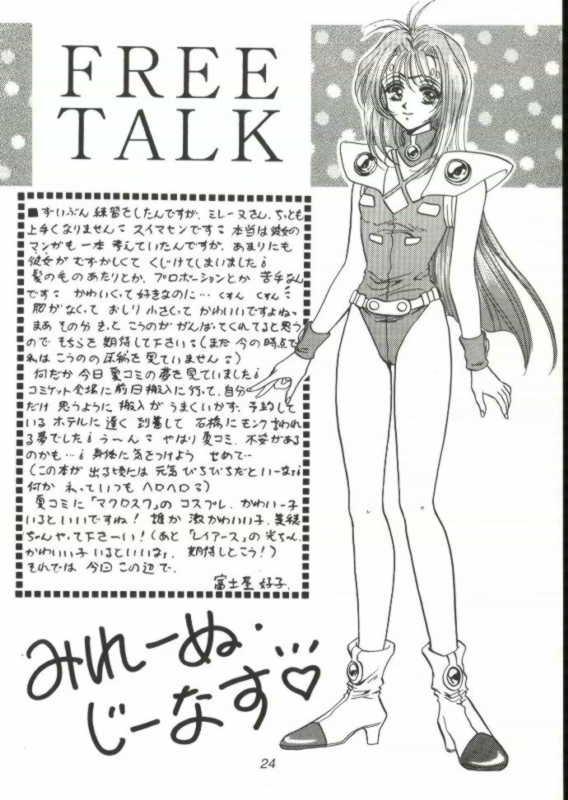 FREE
TALK
■ずいぶん練習をしたんですが、ミレーヌさん、ちっとも
上手くなりません。スイマセンです。本当は彼女の
マンガも一本考えていたんですが、あまりにも
彼女がむずかしくてくじけてしまいました。
髪の毛のあたりとか、プロポーションとか苦手なん
です。かわいくって好きなのに…くすんくすん。
胸がなくておしり小さくてかわいいですよねっ
まあその分きっとこうのががんばってくれてると思う
のでそちらを期待して下さい。(まだ今の時点で
私はこうのの原稿を見ていません。)
何だか今日夏コミの夢を見ていました。
コミケット会場に前日搬入に行って、自分
だけ思うように搬入がうまくいかず、予約して
いるホテルに遅く到着して石橋にモンク言われ
る夢でした。う〜ん。やはり夏コミ、不安がある
のかも…。身体に気をつけようせめて…
(この本が出る頃には元気ぴちぴちだといーな。
何かねっていつもヘロヘロ。)
夏コミに「マクロス7」のコスプレ、かわいー子
いるといいですね!誰か激かわいい子、美穂
ちゃんやって下さーい!(あと「レイアース」の光ちゃん
かわいい子いるといいな。期待しとこう!)
それでは今回この辺で。
富士屋好子.
みれーぬ・
じーなす…♡
24